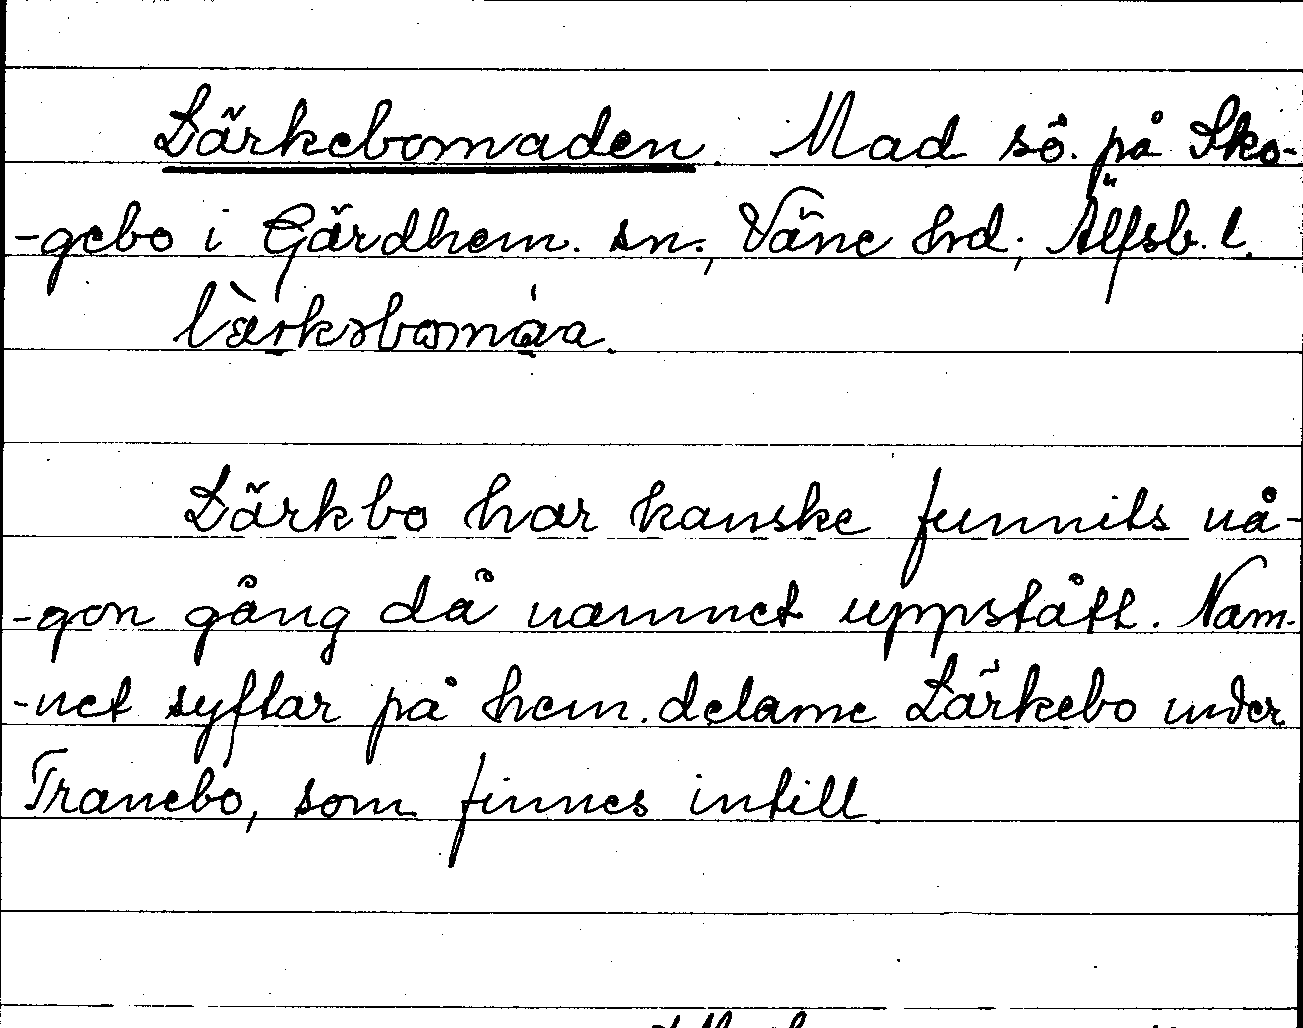 Lärkebomaden. Mad sö. på Sko-
-gebo i Gärdhem. sn., Väne hrd; Älfsb. l.
lærkəbomáa.
Lärkbo har kanske funnits nå-
-gon gång då namnet uppstått. Nam-
-net syftar på hem. delarne Lärkebo under
Tranebo, som finnes intill.